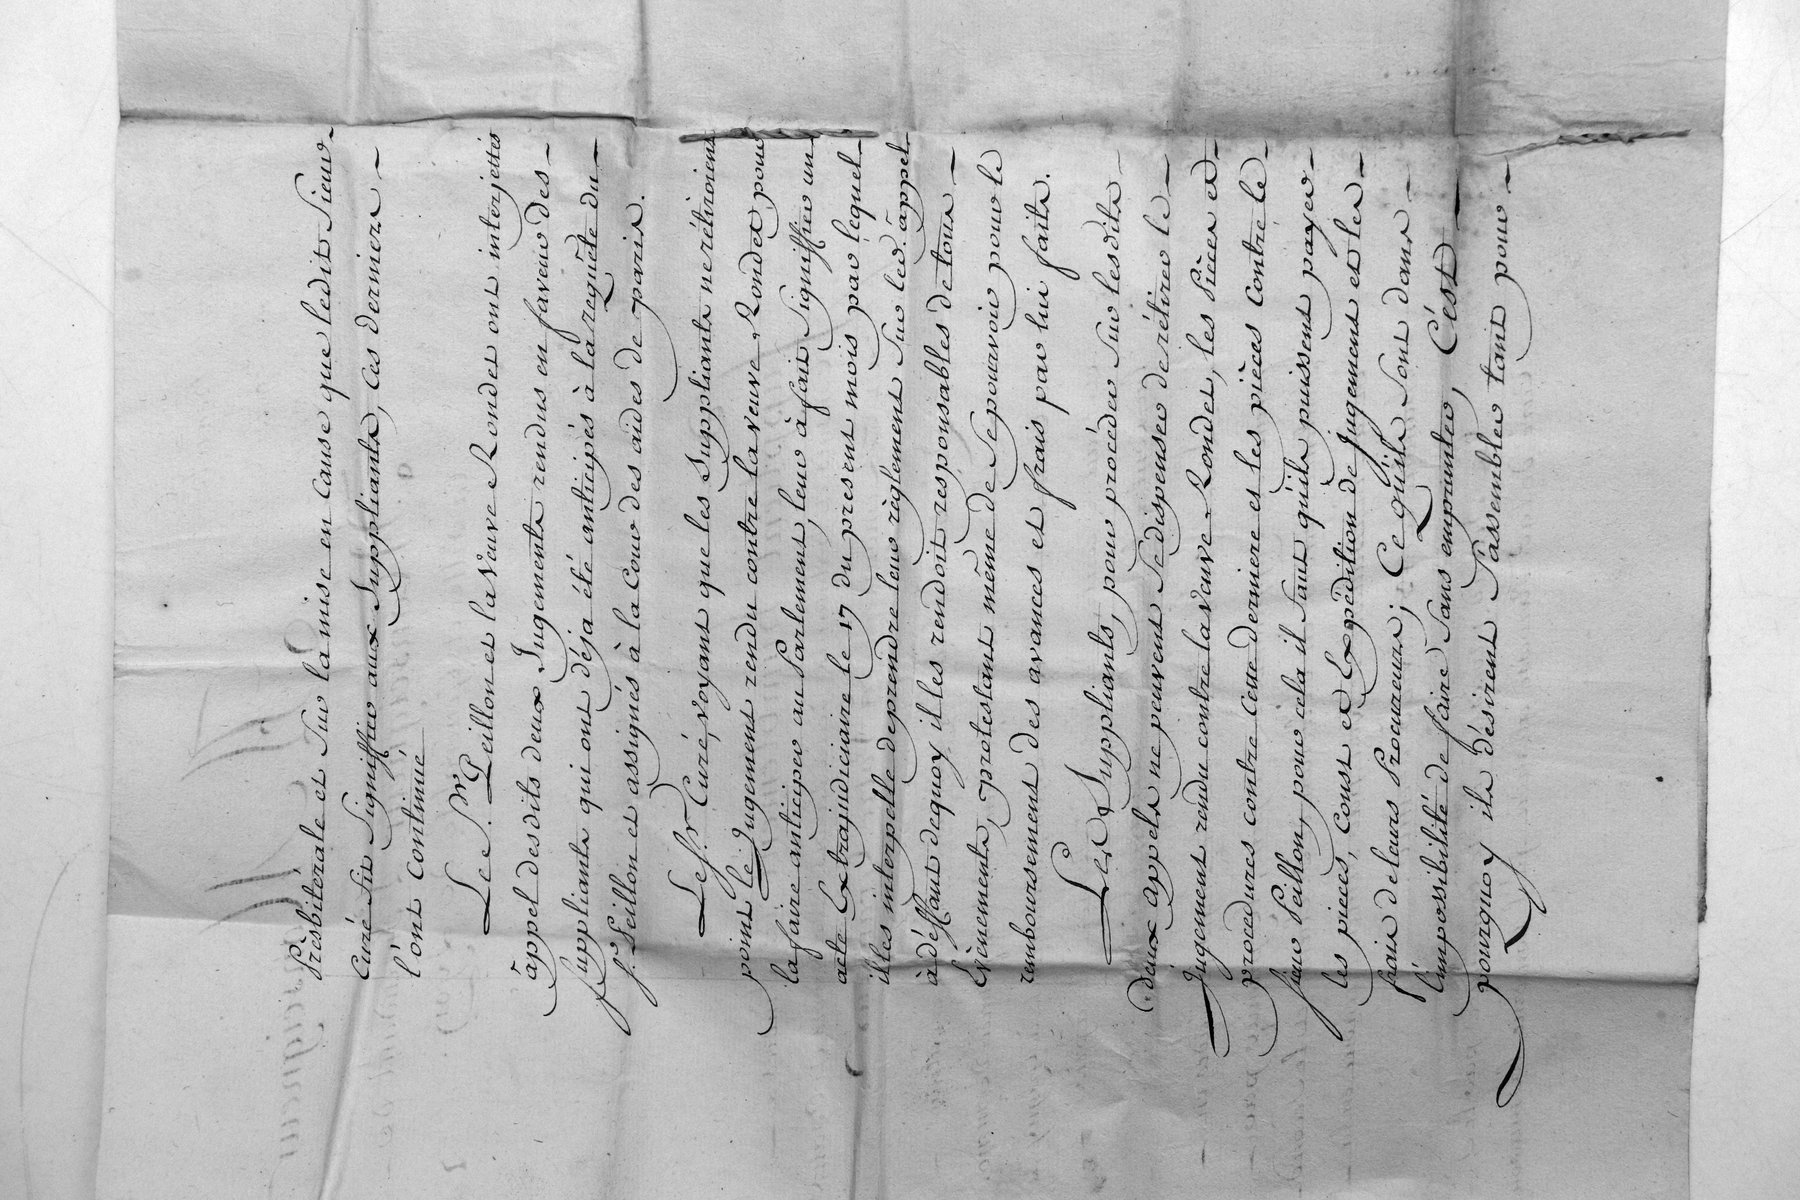 Presbitérale et sur la mise en cause que ledit Sieur
Curé fit signiffier aux Suppliants, ces derniers
l'ont continué
Le Sr. Peillon et la veuve Rondet ont interjettés
appel desdits deux Jugements rendus en faveur des
suppliants qui ont déja été anticipés à la requête du
Sr. Peillon et assignés à la Cour des aides de paris.
Le Sr. Curé, voyant que les Suppliants ne rétiroient
point le Jugement rendu contre la veuve Rondet pour
la faire anticiper au Parlement, leur à fait signiffier un
acte Extrajudiciaire le 17 du present mois par lequel
illes interpelle de prendre leur règlement sur led. appel
à déffaut dequoy illes rendoit responsables de tous
Evènements, protestant même de se pourvoir pour le
remboursement des avances et frais par lui faits.
Les Suppliants, pour procéder sur lesdits
deux appels ne peuvent se dispenser de rétirer le
Jugement rendu contre la veuve Rondet, les Pièces et
procedures contre cette derniere et les pièces contre le
sieur Peillon, pour cela il faut qu'ils puissent payer
les pieces, Coust et Expédition de Jugement et les
frais de leurs Procureurs; Ce qu'ils sont dans
l'impossibilité de faire sans emprunter, C'est
pourquoy ils désirent s'assembler tant pour